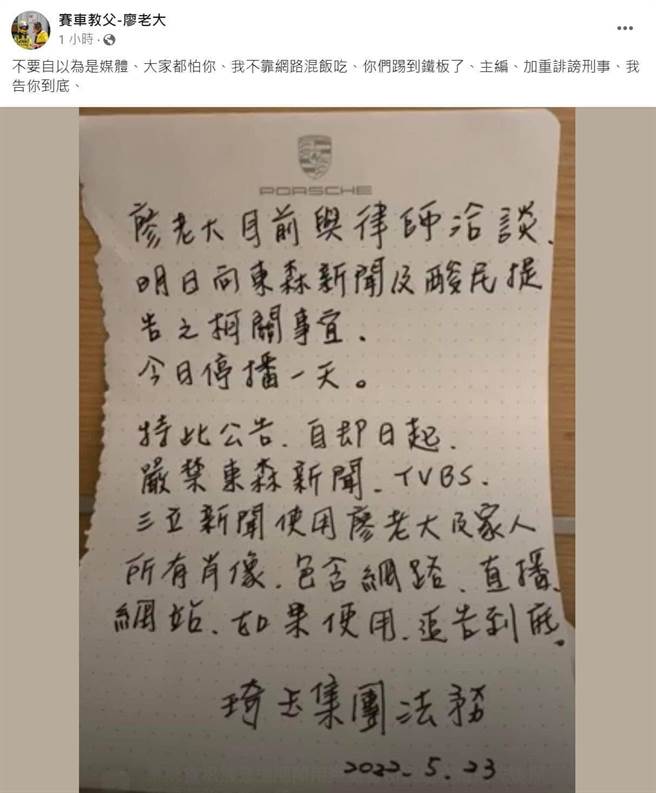 賽車教父-廖老大
1 小時 ·
不要自以為是媒體、大家都怕你、我不靠網路混飯吃、你們踢到鐵板了、主編、加重誹謗刑事、我
告你到底、
PORSCHE
廖老大目前與律師洽談、
明日向東森新聞及酸民提
告之相關事宜、
今日停播一天。
特此公告、自即日起、
嚴禁東森新聞、TVBS、
三立新聞使用廖老大及家人
所有肖像、包含網路、直播、
網站、如果使用、追告到底。
琦玉集團法務
2022. 5. 23